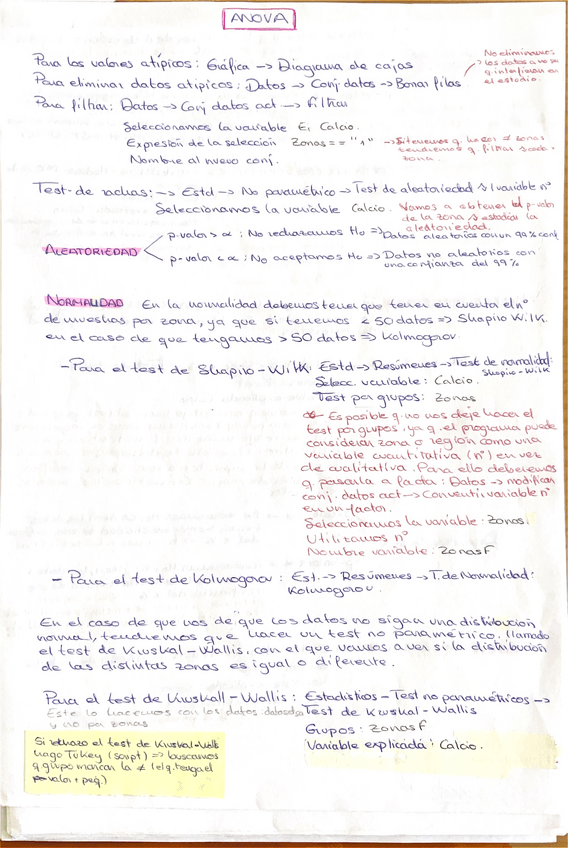 ANOVA
Para los valores atípicos: Gráfica -> Diagrama de cajas
No eliminamos los datos a no ser q. interfieran en el estudio.
Para eliminar datos atípicos: Datos -> Conj datos -> Borrar filas
Para filtrar: Datos -> Conj datos act -> Filtrar
Seleccionamos la variable E, Calcio.
Expresión de la selección Zonas == "1" -> Si tenemos q. hacer ≠ zonas
tendremos q filtrar cada
zona.
Nombre al nuevo conj.
Test de rachas: -> Estd -> No paramétrico -> Test de aleatoriedad variable nº
Seleccionamos la variable Calcio. Vamos a obtener el p-valor
de la zona y estudiar la
aleatoriedad.
ALEATORIEDAD
p-valor > α ; No rechazamos Ho => Datos aleatorios con un 99% conf.
p-valor < α ; No aceptamos Ho => Datos no aleatorios con
una confianza del 99%
NORMALIDAD En la normalidad debemos tener que tener en cuenta el nº
de muestras por zona, ya que si tenemos < 50 datos => Shapiro Wilk.
en el caso de que tengamos > 50 datos => Kolmogorov.
- Para el test de Shapiro-Wilk: Estd -> Resúmenes -> Test de normalidad:
Shapiro-Wilk
Selecc. variable: Calcio.
Test por grupos: Zonas
- Es posible q. no nos deje hacer el
test por grupos, ya q. el programa puede
considerar zona o región como una
variable cuantitativa (nº) en vez
de cualitativa. Para ello deberemos
q pasarla a facta: Datos -> modificar
conj. datos act -> Convertir variable nº
en un factor.
Seleccionamos la variable: Zonas.
Utilizamos nº
Nombre variable: ZonasF
- Para el test de Kolmogorov: Est. -> Resúmenes -> T. de Normalidad:
Kolmogorov.
En el caso de que nos de que los datos no sigan una distribución
normal, tendremos que hacer un test no paramétrico, llamado
el test de Kruskal-Wallis, con el que vamos a ver si la distribución
de las distintas zonas es igual o diferente.
Para el test de Kruskall-Wallis: Estadístios - Test no paramétricos ->
Este lo hacemos con los datos
Test de Kruskal-Wallis
y no por zonas
Grupos: ZonasF
Variable explicada: Calcio.
Si rechazo el test de Kruskal-Wallis
hago Tukey (script) => buscamos
q grupo marcan la ≠ (el q. tenga el
p valor + peq.)